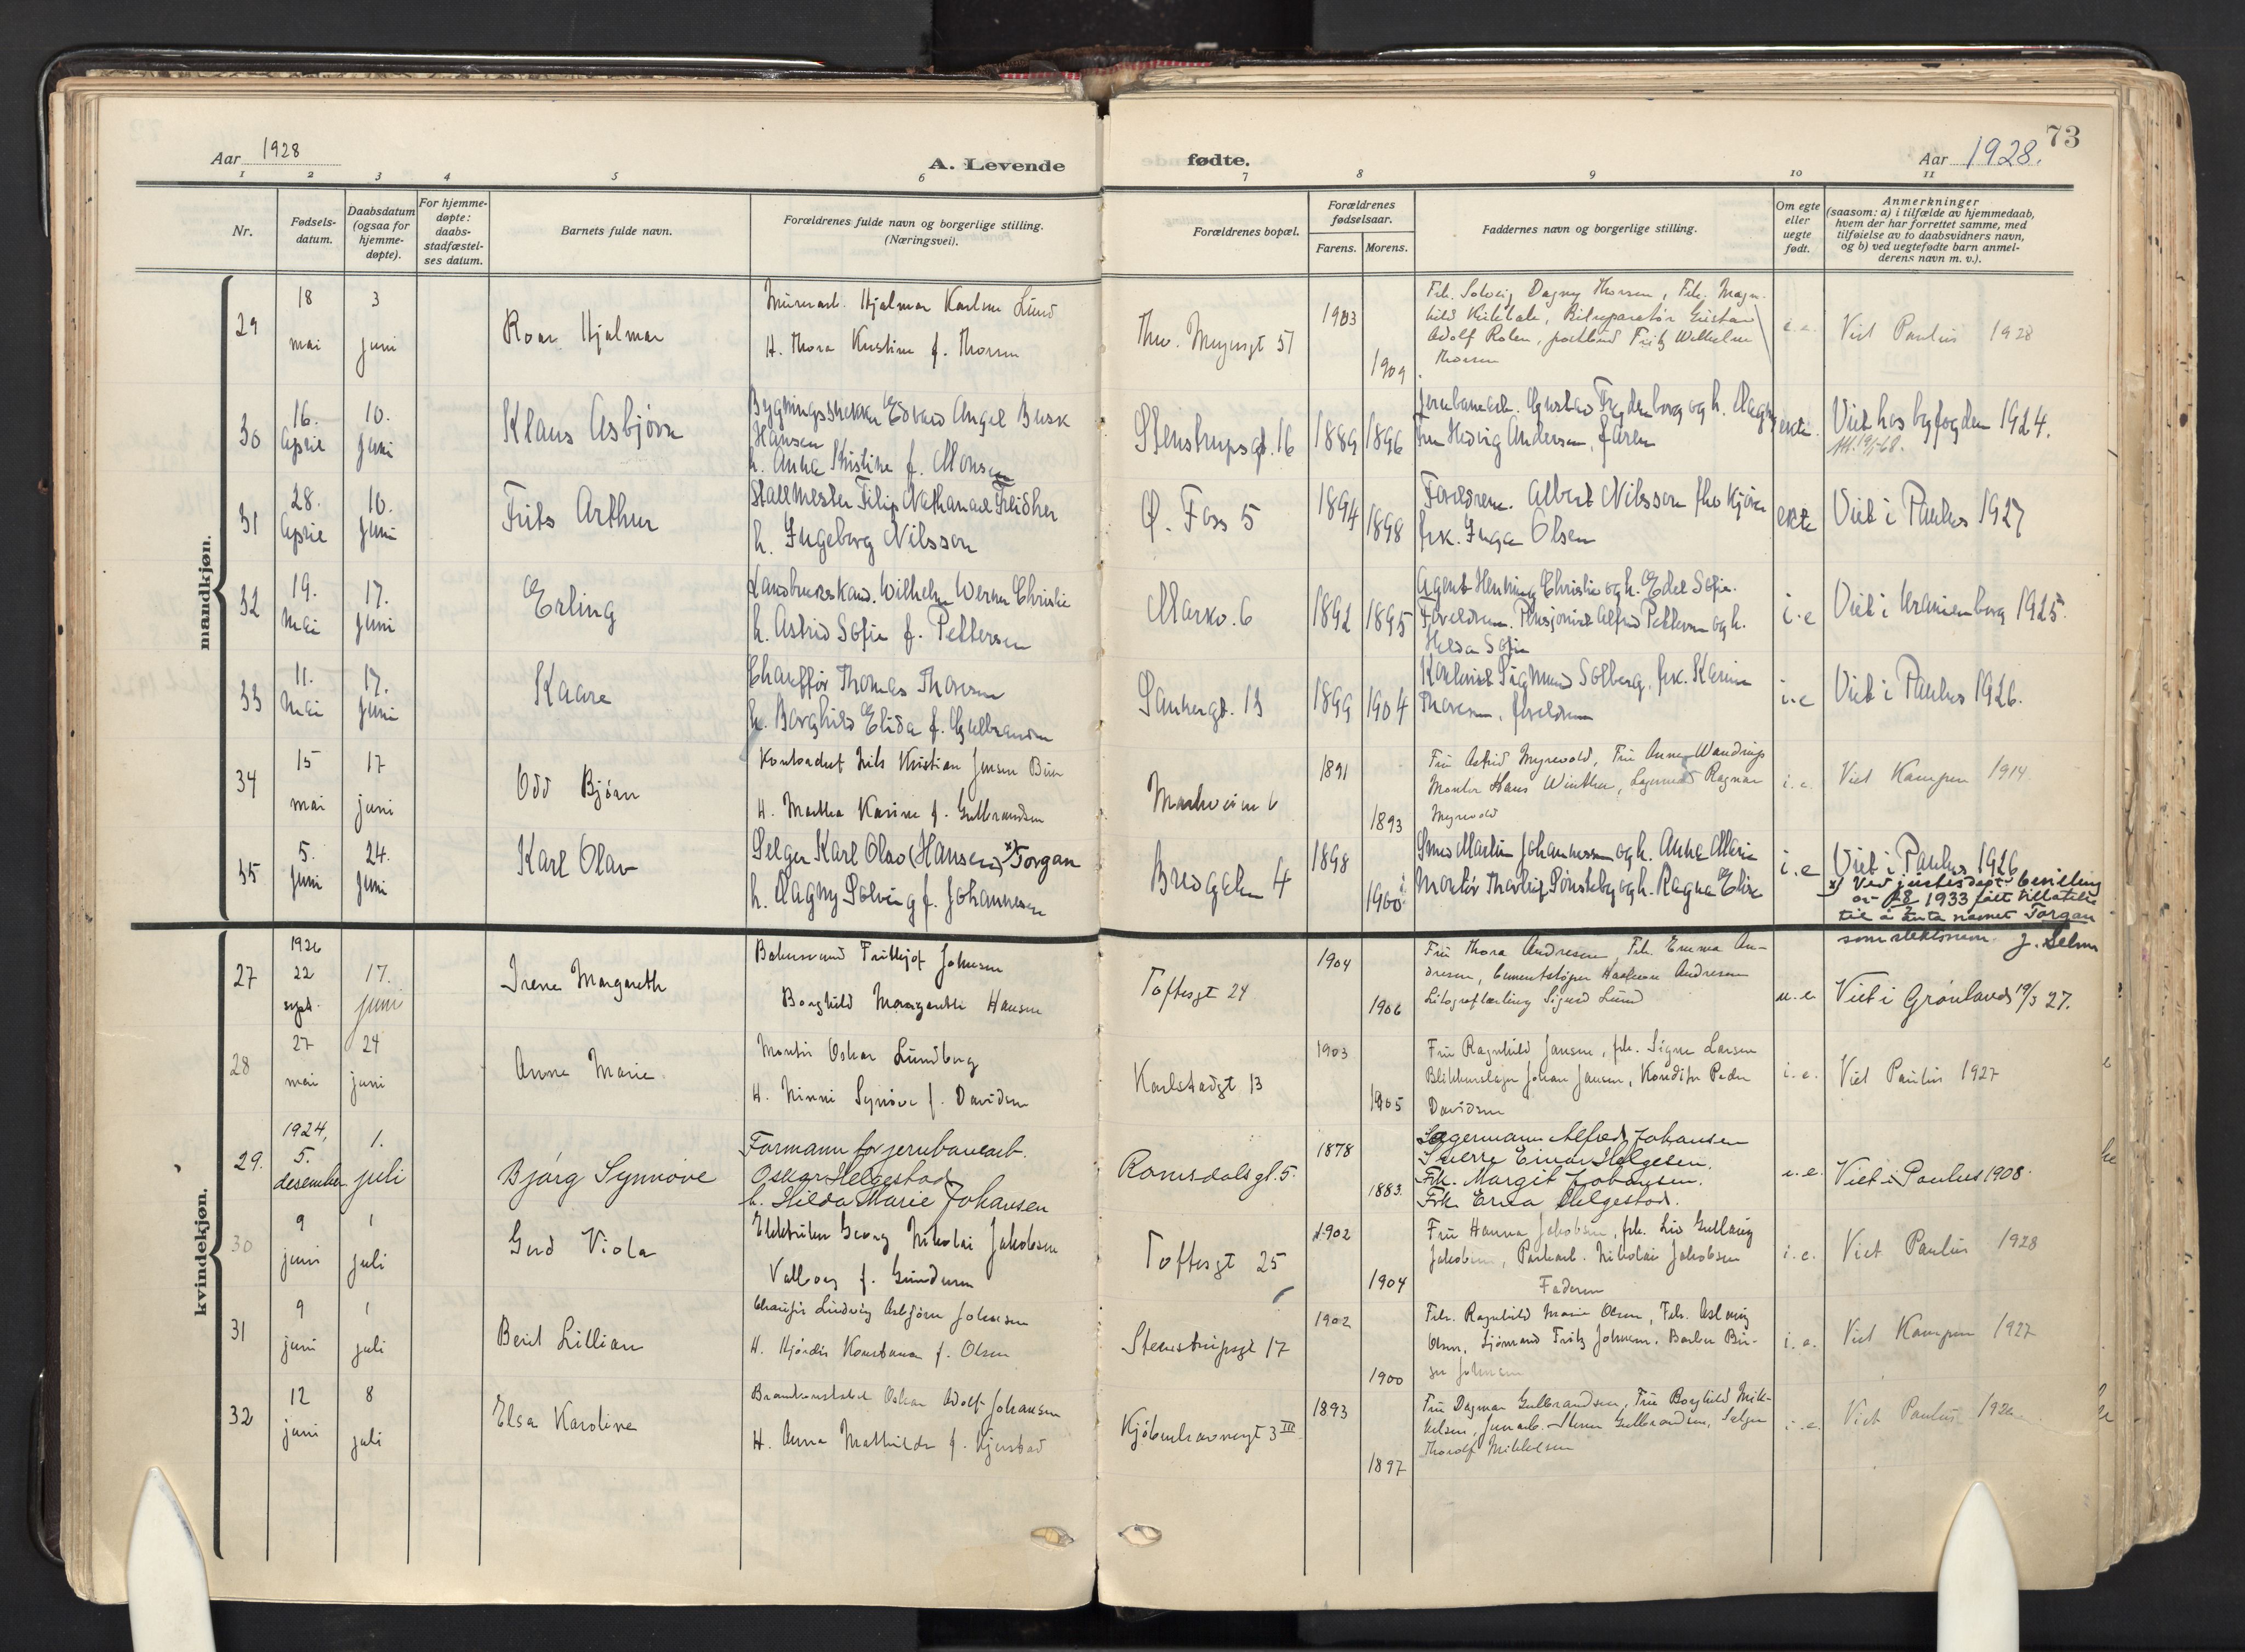 Aar 1928
A. Levende
fødte.
73
Aar 1928.
1 2 3 4 5 6 7 8 9 10 11
Nr.
Fødsels-
datum.
Daabsdatum
(ogsaa for
hjemme-
døpte).
For hjemme-
døpte:
daabs-
stadfæstel-
ses datum.
Barnets fulde navn.
Forældrenes fulde navn og borgerlige stilling.
(Næringsvei).
Forældrenes bopæl.
Forældrenes
fødselsaar.
Farens. Morens.
Faddernes navn og borgerlige stilling.
Om egte
eller
uegte
født.
Anmerkninger
(saasom: a) i tilfælde av hjemmedaab,
hvem der har forrettet samme, med
tilføielse av to daabsvidners navn,
og b) ved uegtefødte barn anmel-
derens navn m. v.).
mandkjøn.
29
18
mai
3
juni
Roar Hjalmar
Murerarb. Hjalmar Karlsen Lund
H. Thora Kristine f. Thorsen
Thv. Meyersgt 51
1903
1909
Frk. Solveig Dagny Thorsen, Frk. Magn-
hild Bilreparatør Gustav
Adolf postbud Fritz Wilhelm
Thorsen
i.e.
Viet Paulus 1928
30
16.
april
10.
juni
Klaus Asbjørn
Bygningssnekker Edvard Angel Busk
Hansen
h. Anna Kristine f. Monsen
Stenstrupsgt. 16
1889
1896
Jernbanearb. Gustav Frydenborg og h. Dagny
Fru Hedvig Andersen, faren
ekte.
Viet hos byfogden 1924.
31
28.
april
10.
juni
Frits Arthur
Stallmester Filip Nathanael Freidher
h. Ingeborg Nilsson
Ø. Foss 5
1894
1898
Foreldrene. Albert Nilsson fra
frk. Inga Olsen
ekte
Viet i Paulus 1927
32
19.
Mai
17.
juni
Erling
Landbrukskand. Wilhelm Werner Christie
h. Astrid Sofie f. Pettersen
Markv. 6
1892
1895
Agent Henning Christie og h. Edel Sofie.
Foreldrene. Pensjonist Alfred Pettersen og h.
Helda Sofie
i.e
Viet i Uranienborg 1925.
33
11.
Mai
17.
juni
Kaare
Chauffør Thomas Thoresen
h. Borghild Elida f. Gulbrandsen
Sannergt. 13
1899
1904
Kontorist Sigmund Solberg, frk. Karin
Thoresen, foreldrene
i.e
Viet i Paulus 1926.
34
15
mai
17
juni
Odd Bjørn
Nils Kristian Jensen
H. Martha Karine f. Gulbrandsen
Markveien 6
1891
1893
Fru Astrid Myrvold, Fru Anna Wandrup
Montør Hans Winther, Ragnar
Myrvold
i.e.
Viet Kampen 1914.
35
5.
juni
24.
juni
Karl Olav
Selger Karl Olav (Hansen) x) Torgan
h. Dagny Solveig f. Johannesen
Bredgaten 4
1898
1900
Smed Martin Johannessen og h. Anna Marie
Montør Thorleif Sønsteby og h. Ragna Elise
i.e
Viet i Paulus 1926
x) Ved justisdept's bevilling
av 1933 fått tillatelse
til å anta navnet Torgan
som slektsnavn. J. Selm
kvindekjøn.
27
1926
22
sept.
17.
juni
Irene Margareth
Frithjof Johnsen
Borghild Margarethe Hansen
Toftesgt 24
1904
1906
Fru Thora Andresen, Frk. Emma An-
dresen, Cementstøper Haakon Andresen
Litograflærling Sigurd Lund
u.e.
Viet i Grønlands 19/3 27.
28
27
mai
24
juni
Anne Marie
Montør Oskar Lundberg
H. Ninni Synøve f. Davidsen
Karlstadgt 13
1903
1905
Fru Ragnhild Jansen, frk. Signe Larsen
Blikkenslager Johan Jansen, Konditor Peder
Davidsen
i.e.
Viet Paulus 1927
29.
1924,
5.
desember
1.
juli
Bjørg Synnøve
Formann for jernbanearb.
Oskar Helgestad
h. Hilda Marie Johansen
Romsdalsgt. 5.
1878
1883.
Lagermann Alfred Johansen
Sverre Einar Helgesen.
Frk. Margit Johansen.
Frk. Erna Helgestad.
u.e.
Viet i Paulus 1908.
30
9
juni
1
juli
Gerd Viola
Elektriker Georg Nikolai Jakobsen
Valborg f. Gundersen
Toftesgt 25
1902
1904
Fru Hanna Jakobsen, frk. Liv Gullaug
Jakobsen, Nikolai Jakobsen
Faderen
i.e.
Viet Paulus 1928
31
9
juni
1
juli
Berit Lillian
Chauffør Ludvig Asbjørn Johnsen
H. Hjørdis Konstanse f. Olsen
Stenstrupsgt 17
1902
1900
Frk. Ragnhild Marie Olsen, Frk. Aslaug
Olsen, Sjømand Fritz Johnsen, Barber Bir-
ger Johnsen
i.e.
Viet Kampen 1927
32
12
juni
8
juli
Elsa Karoline
Brandkonstabel Oskar Adolf Johansen
H. Anna Mathilde f. Gjerstad
Kjøbenhavnergt 3 III
1893
1897
Fru Dagmar Gulbrandsen, Fru Borghild Mik-
kelsen, Jernarb. Gulbrandsen, Selger
Thorolf Mikkelsen
i.e.
Viet Paulus 1926